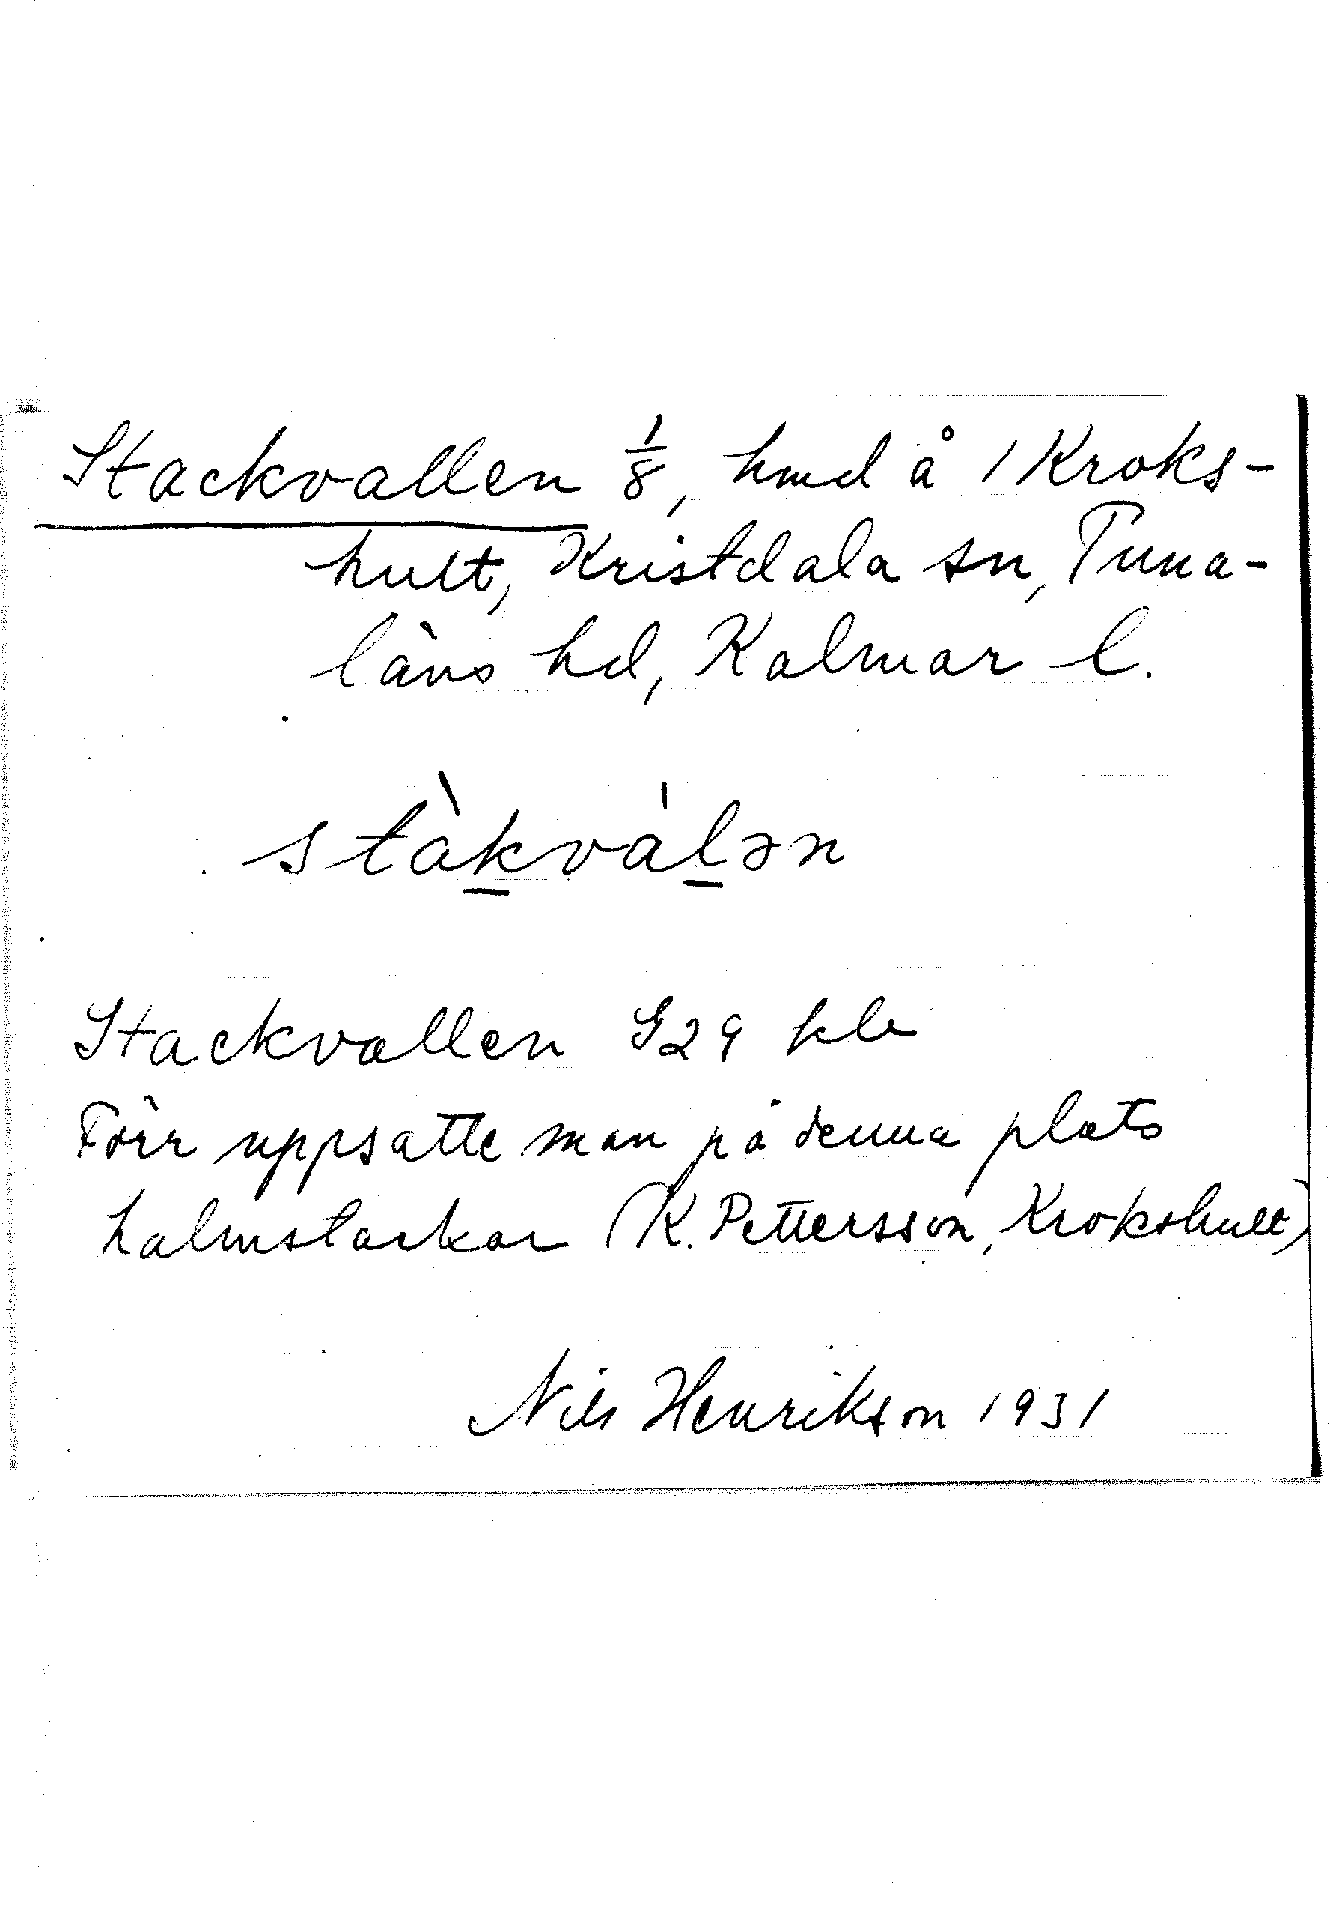 Stackvallen 1/8, hmd å 1 Kroks-
hult, Kristdala sn, Tuna-
läns hd, Kalmar l.
stàk̲vàl̲ən
Stackvallen G29 kle
Förr uppsatte man på denna plats
halmstackar (K. Pettersson, Krokshult)
Nils Henrikson 1931